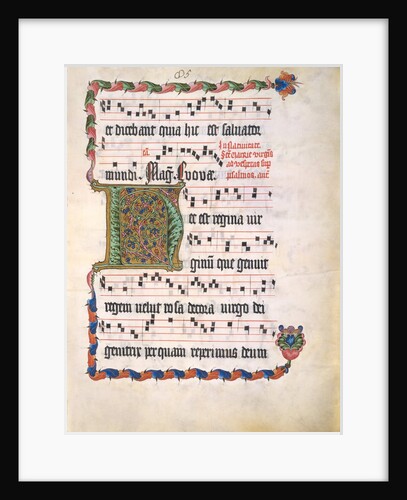 et dicebant quia hic est saluator
mundi. Mag. Evovae.
In nativitate
sctae mariae virgis
ad vesperas sup
psalmos. ant.
Hec est regina uir
ginum que genuit
regem uelut rosa decora uirgo dei
genitrix per quam reperimus deum